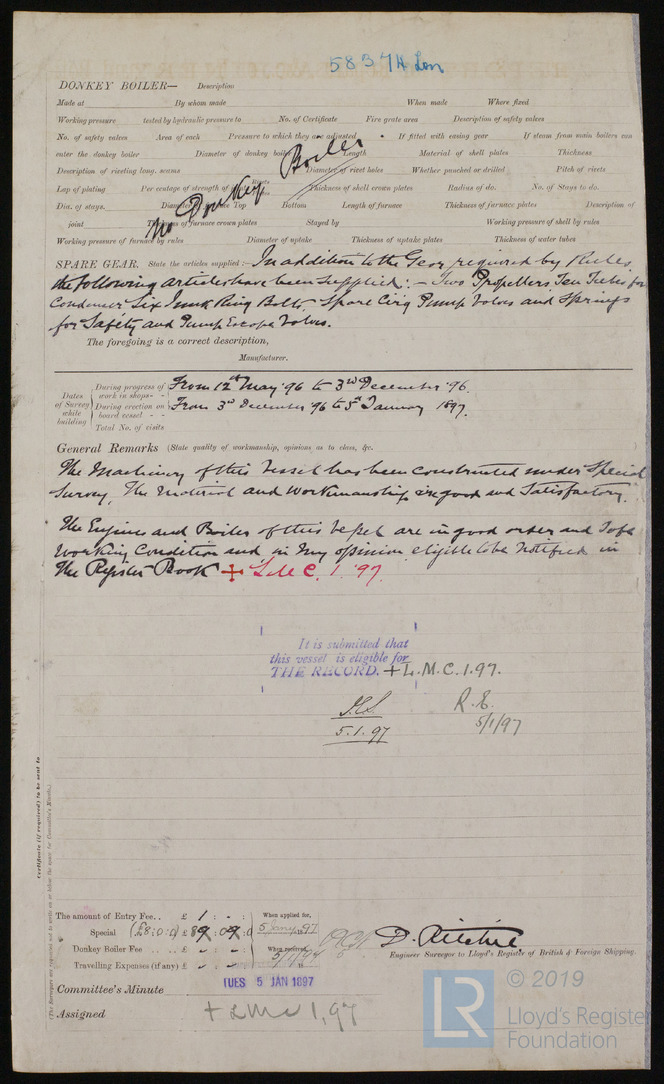 58374 Lon
DONKEY BOILER— Description
Made at By whom made When made Where fixed
Working pressure tested by hydraulic pressure to No. of Certificate Fire grate area Description of safety valves
No. of safety valves Area of each Pressure to which they are adjusted If fitted with easing gear If steam from main boilers can
enter the donkey boiler Diameter of donkey boiler Length Material of shell plates Thickness
Description of riveting long. seams Diameter of rivet holes Whether punched or drilled Pitch of rivets
Lap of plating Per centage of strength of Rivets Thickness of shell crown plates Radius of do. No. of Stays to do.
Dia. of stays. Diameter of furnace Top Bottom Length of furnace Thickness of furnace plates Description of
joint Thickness of furnace crown plates Stayed by Working pressure of shell by rules
Working pressure of furnace by rules Diameter of uptake Thickness of uptake plates Thickness of water tubes
No Donkey Boiler
SPARE GEAR. State the articles supplied:— In addition to the Gear required by Rules
the following articles have been supplied:— Two Propellers, Ten Tubes for
Condenser Six Junk Ring Bolts, Spare Circg Pump Valves and Springs
for Safety and Pump Escape Valves.
The foregoing is a correct description,
Manufacturer.
Dates of Survey while building
During progress of work in shops- - From 12th May '96 to 3rd December '96.
During erection on board vessel - - From 3rd December '96 to 5th January 1897.
Total No. of visits
General Remarks (State quality of workmanship, opinions as to class, &c.
The Machinery of this Vessel has been constructed under Special
Survey, The Material and workmanship is good and Satisfactory.
The Engines and Boilers of this vessel are in good order and Safe
working Condition and in my opinion eligible to be notified in
the Register Book + L.M.C. 1.'97.
It is submitted that
this vessel is eligible for
THE RECORD. + L.M.C. 1.97.
5.1.97
R.E.
5/1/97
Certificate (if required) to be sent to
The amount of Entry Fee.. £ 1 : - : When applied for,
Special (£8:0:0) £ 89 : 09 : 0 5 Jany. 97
Donkey Boiler Fee £ - : - : When received,
Travelling Expenses (if any) £ - : - : 5/1/97
D. Ritchie
Engineer Surveyor to Lloyd's Register of British & Foreign Shipping.
Committee's Minute TUES 5 JAN 1897
Assigned + LMC 1,97
LR © 2019
Lloyd's Register
Foundation